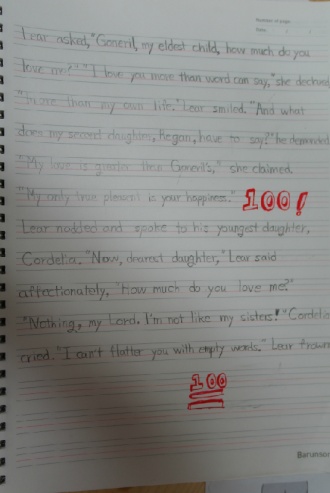 Number of page
Date
Lear asked, "Goneril, my eldest child, how much do you
love me?" "I love you more than word can say," she declared
"more than my own life." Lear smiled. "And what
does my second daughter, Regan, have to say?" he demanded
"My love is greater than Goneril's," she claimed.
"My only true pleasent is your happines." 100!
Lear nodded and spoke to his youngest daughter,
Cordelia. "Now, dearest daughter," Lear said
affectionately, "How much do you love me?"
"Nothing, my Lord. I'm not like my sisters!" Cordelia
cried. "I can't flatter you with empty words." Lear frown
100
Barunson